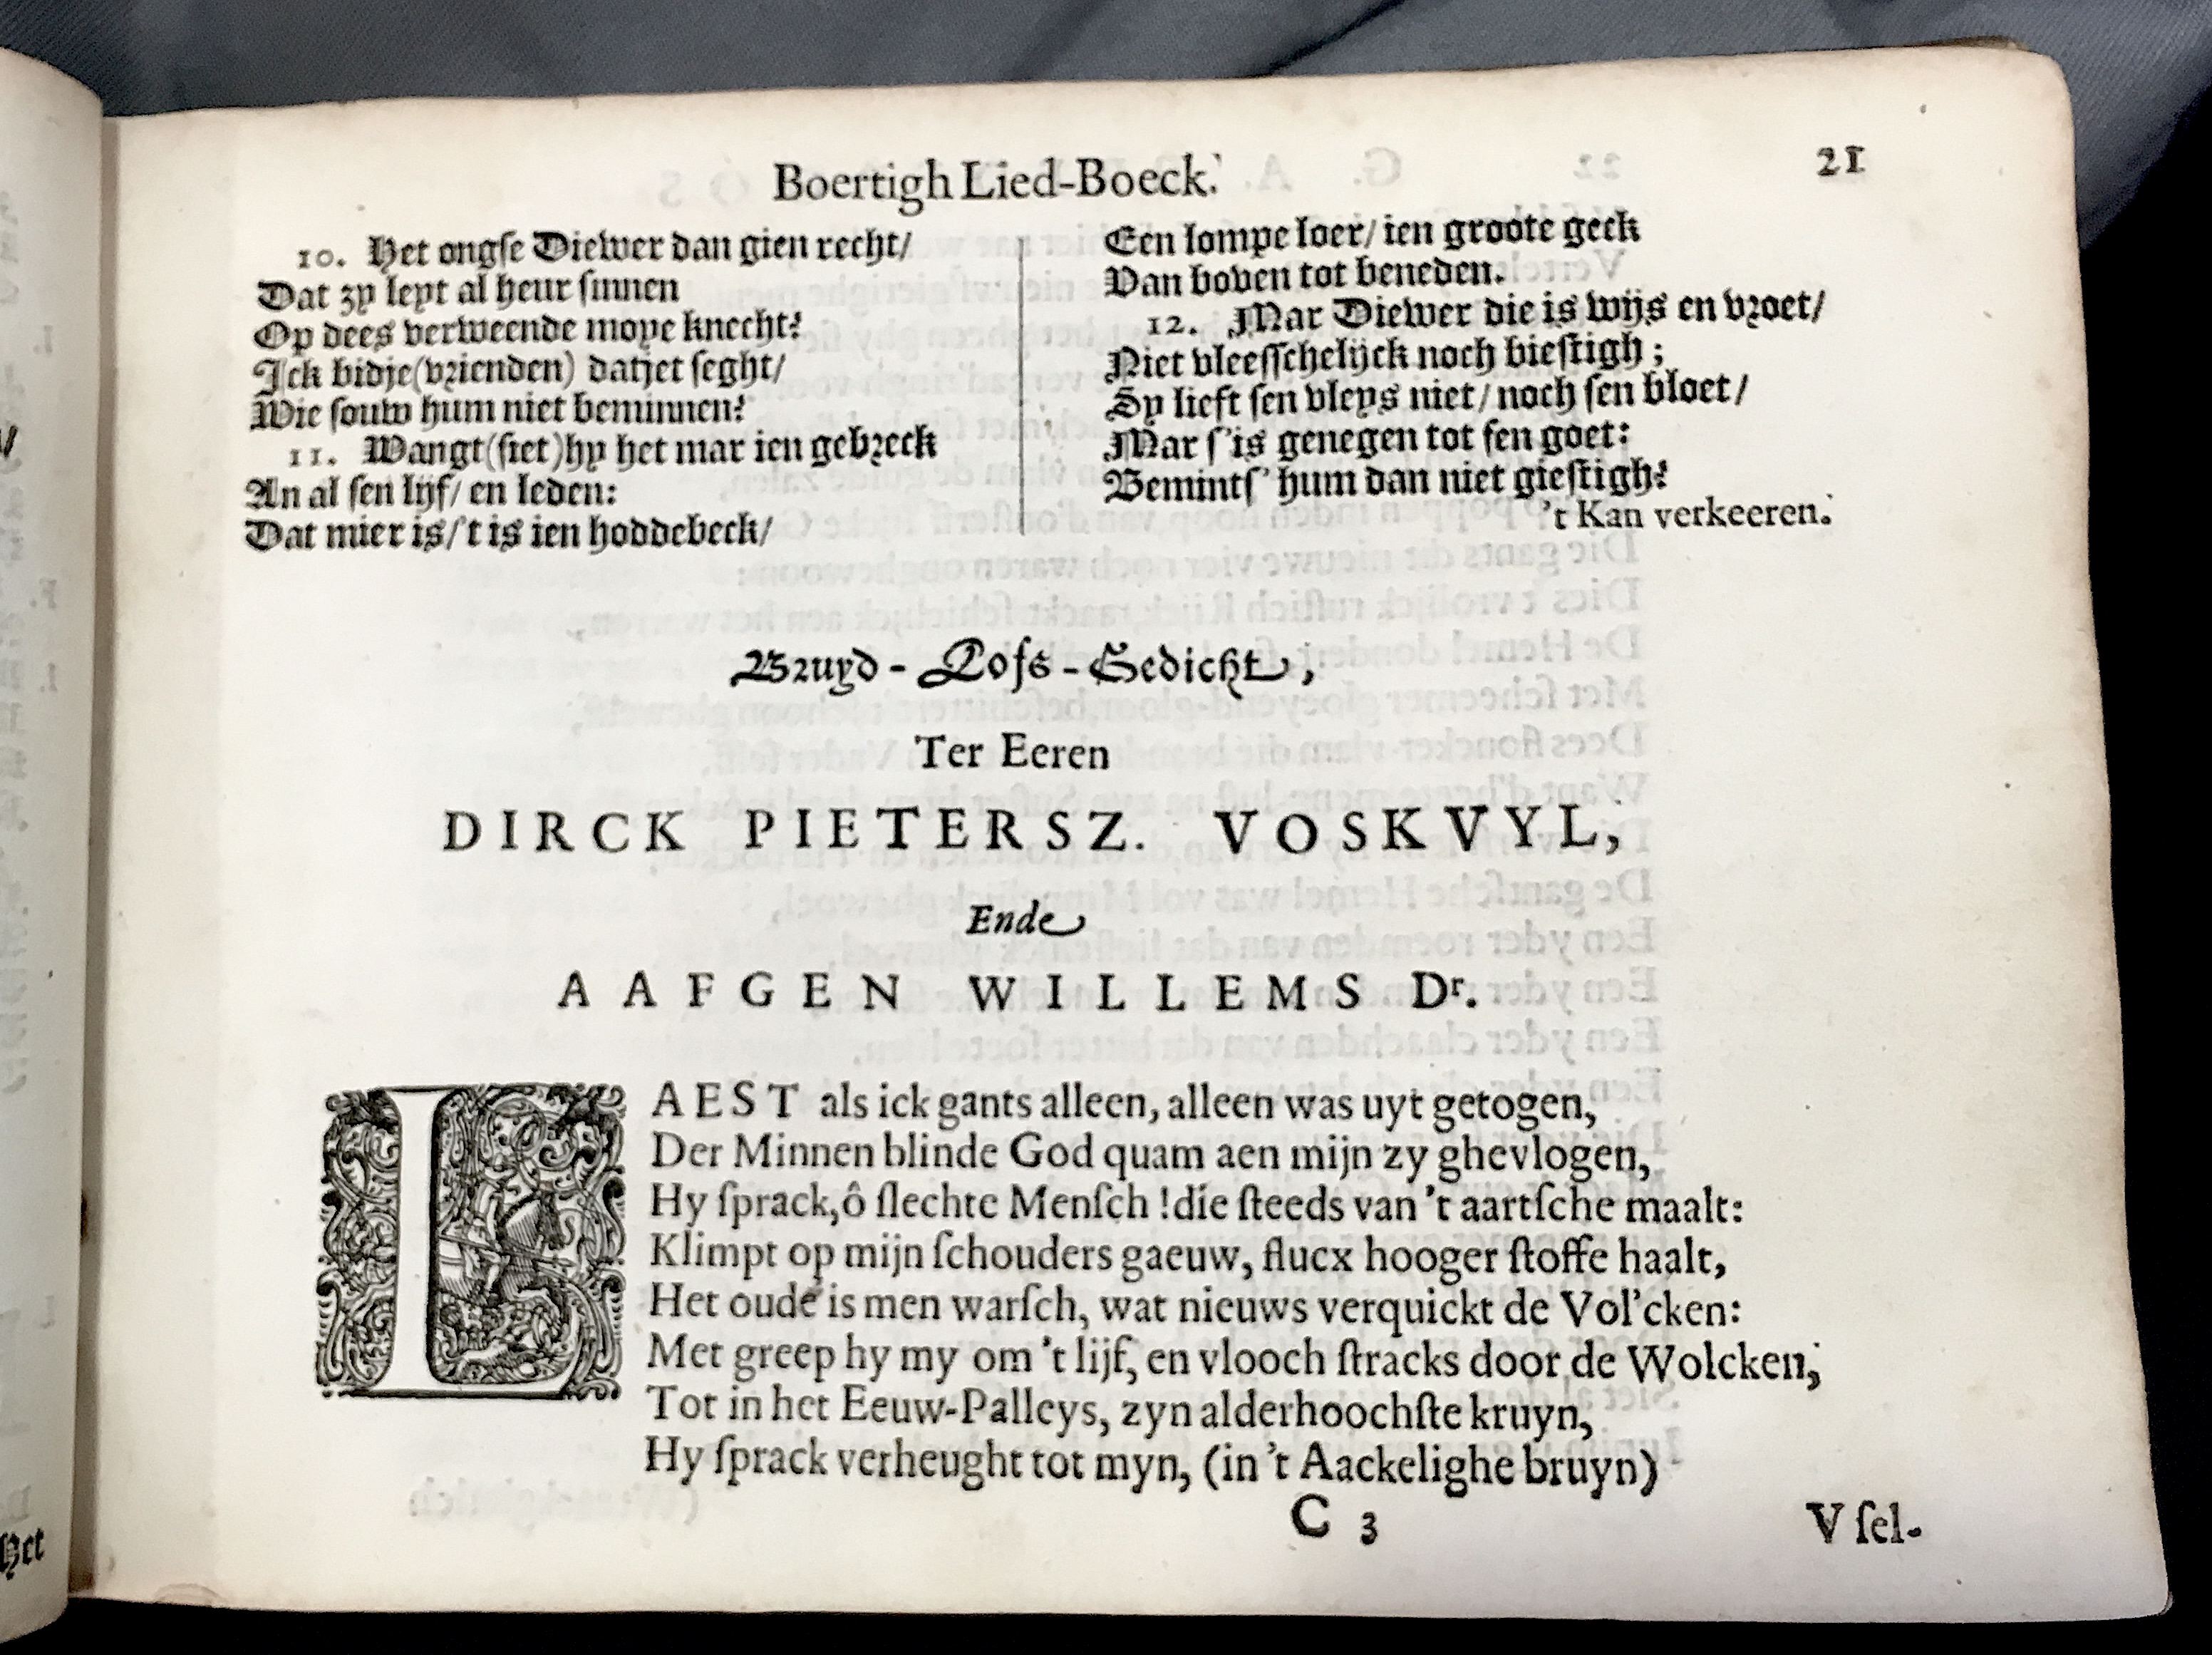 Boertigh Lied-Boeck.
21
10. Het ongse Diewer dan gien recht/
Dat zy leyt al heur sinnen
Op dees verweende moye knecht?
Ick bidje (vrienden) datjet seght/
Wie souw hum niet beminnen?
11. Wangt (siet) hy het mar ien gebreck
An al sen lijf/ en leden:
Dat mier is/ 't is ien hoddebeck/
Een lompe loer/ ien groote geck
Van boven tot beneden.
12. Mar Diewer die is wijs en vroet/
Niet vleesschelijck noch biestigh;
Sy lieft sen vleys niet/ noch sen bloet/
Mar s'is genegen tot sen goet:
Bemints' hum dan niet giestigh?
't Kan verkeeren.
Bruyd-Lofs-Gedicht,
Ter Eeren
DIRCK PIETERSZ. VOSKVYL,
Ende
AAFGEN WILLEMS Dr.
LAEST als ick gants alleen, alleen was uyt getogen,
Der Minnen blinde God quam aen mijn zy ghevlogen,
Hy sprack, ô slechte Mensch! die steeds van 't aartsche maalt:
Klimpt op mijn schouders gaeuw, flucx hooger stoffe haalt,
Het oude is men warsch, wat nieuws verquickt de Vol'cken:
Met greep hy my om 't lijf, en vlooch stracks door de Wolcken,
Tot in het Eeuw-Palleys, zyn alderhoochste kruyn,
Hy sprack verheught tot myn, (in 't Aackelighe bruyn)
C 3
V sel-
Het